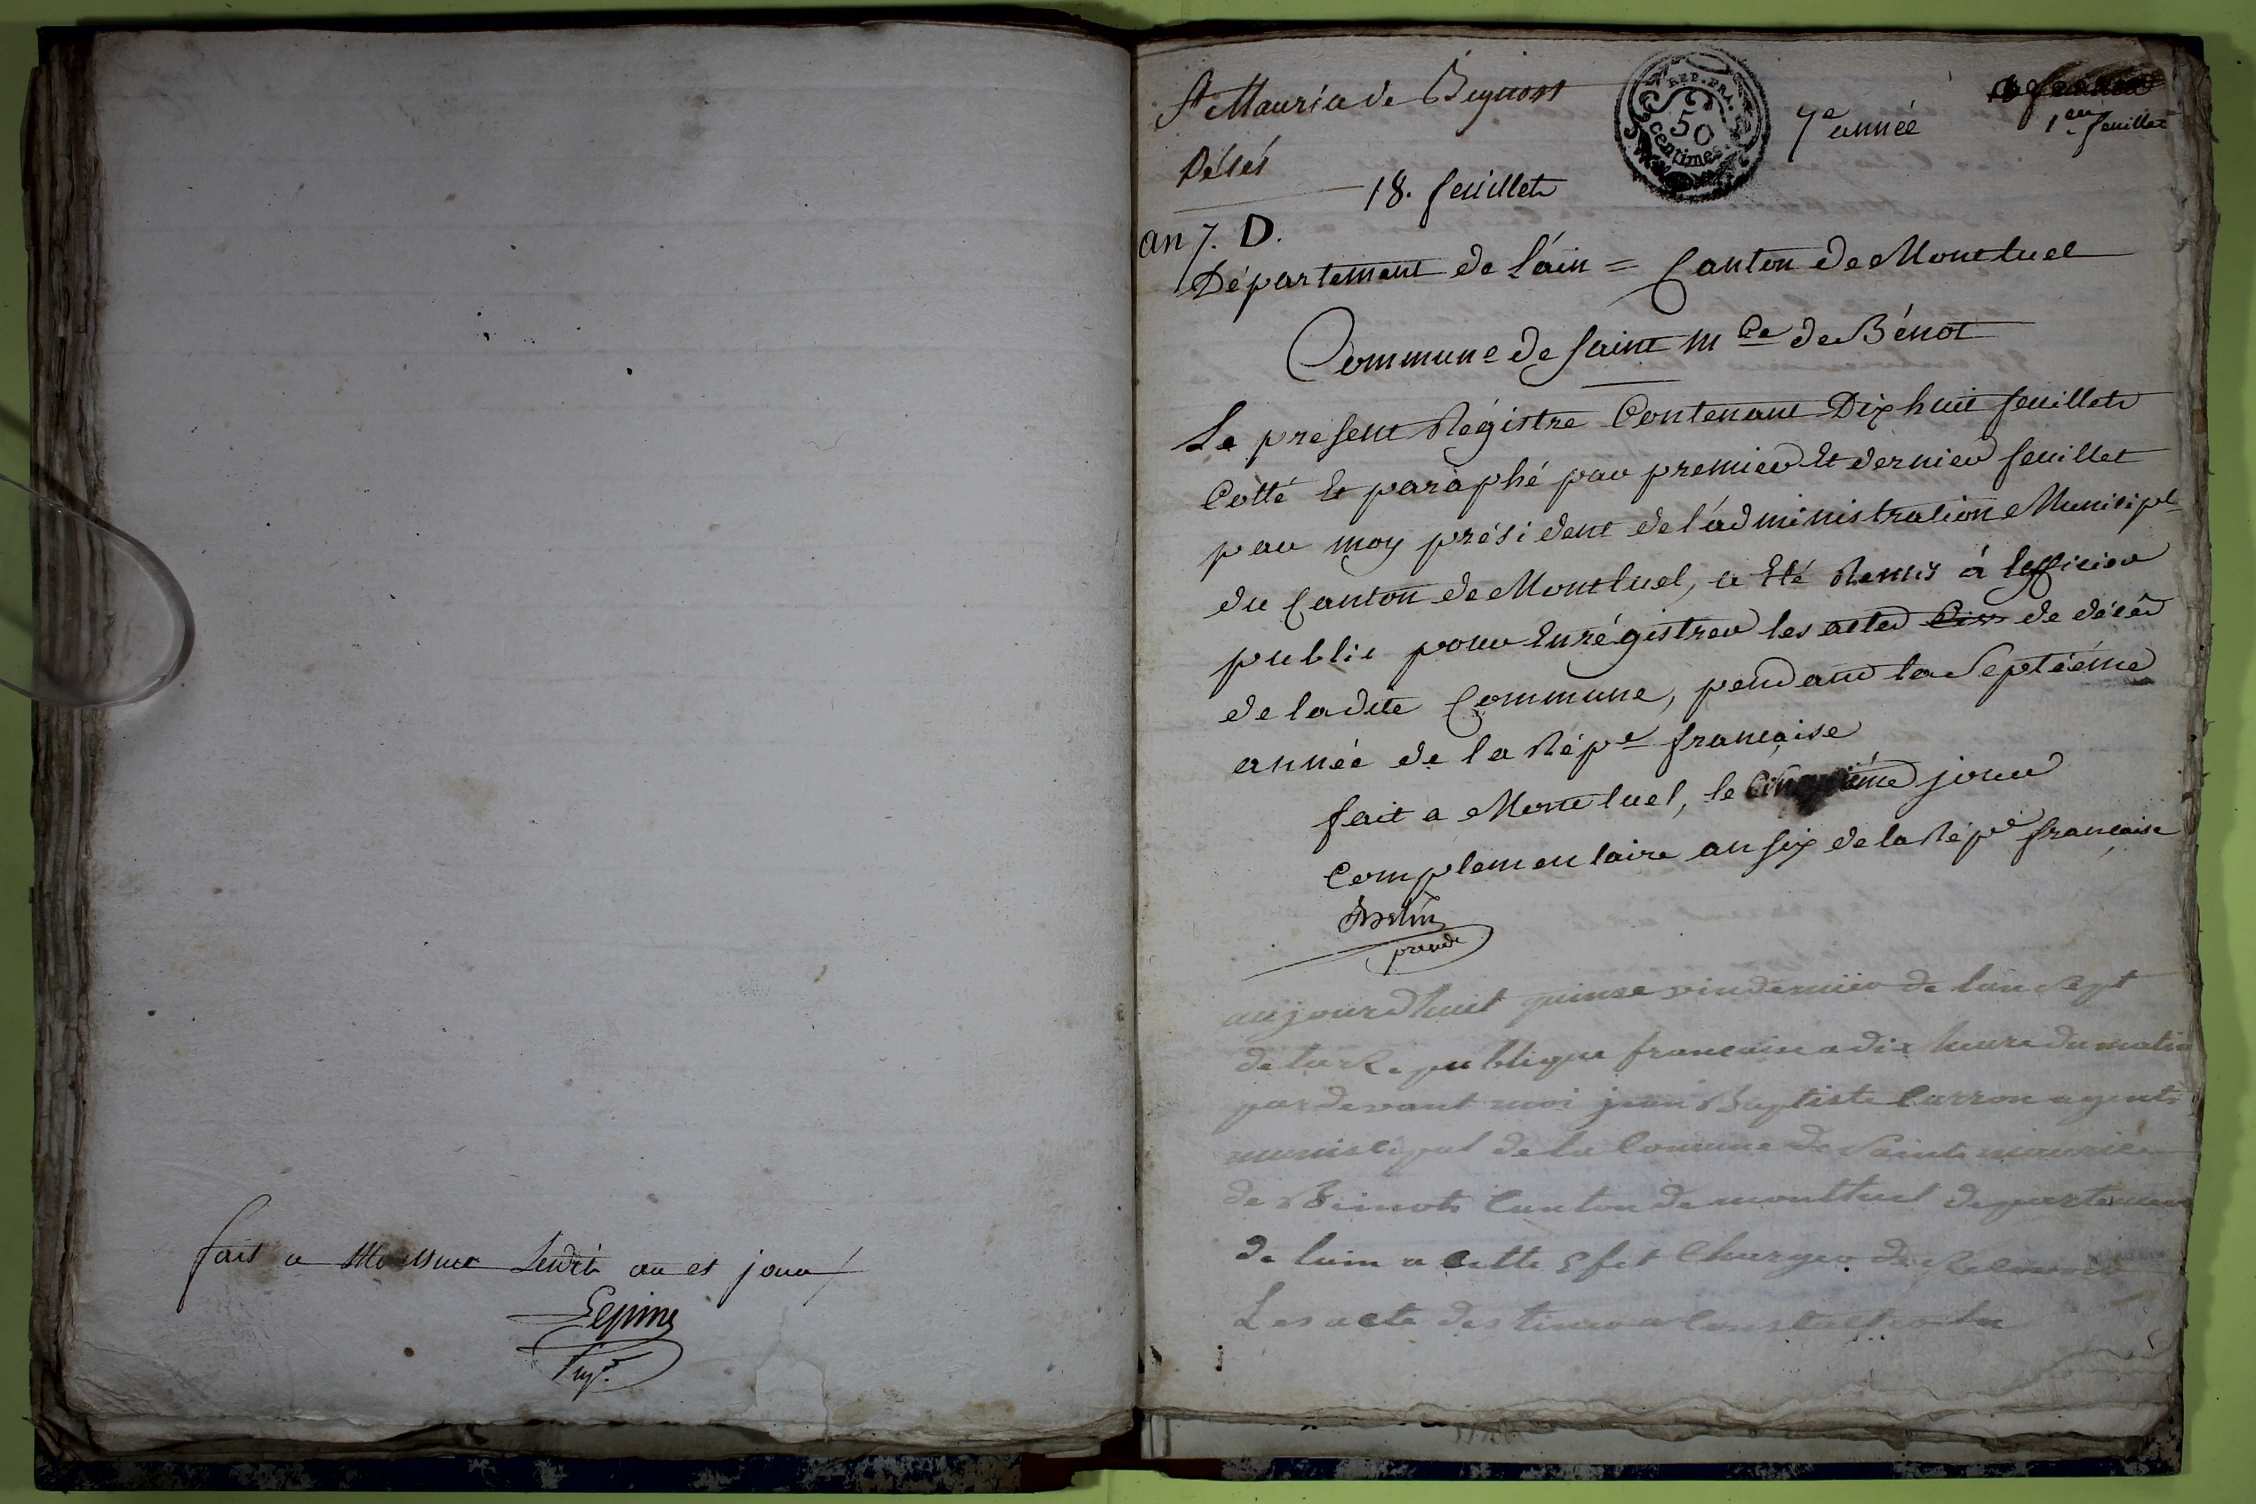 fait a Montluel Ledit an et jour
St Maurice de Beynost
7e année
1er feuillet
REP. FRA.
50
centimes
Décés
18. feuillets
an 7. D.
Département de l'áin = Canton de Montluel
Commune de Saint Mce de Bénot
Le présent Régistre Contenant Dix huit feuillets
Cotté Et paraphé par premier Et dernier feuillet
par moy président de l'administration Municiple
du Canton de Montluel, a Eté Remis à lofficier
public pour Enrégistrer les actes Civ de décès
de ladite Commune, pendant la Septiéme
année de la Répe française
fait a Montluel, le Cinquiéme jour
Complementaire an six de la Répe française
presdt
aujourdhuit quinse vindemiier de lan sept
de la Republique francaise a dix heure du matin
par devant moi jean Baptiste Carron agent
municipal de la Comune de Sainte maurice
de Beinots Canton de montluel departement
de lain a Cette Efet Charger de Recevoir
Les acte destiner a Constater la